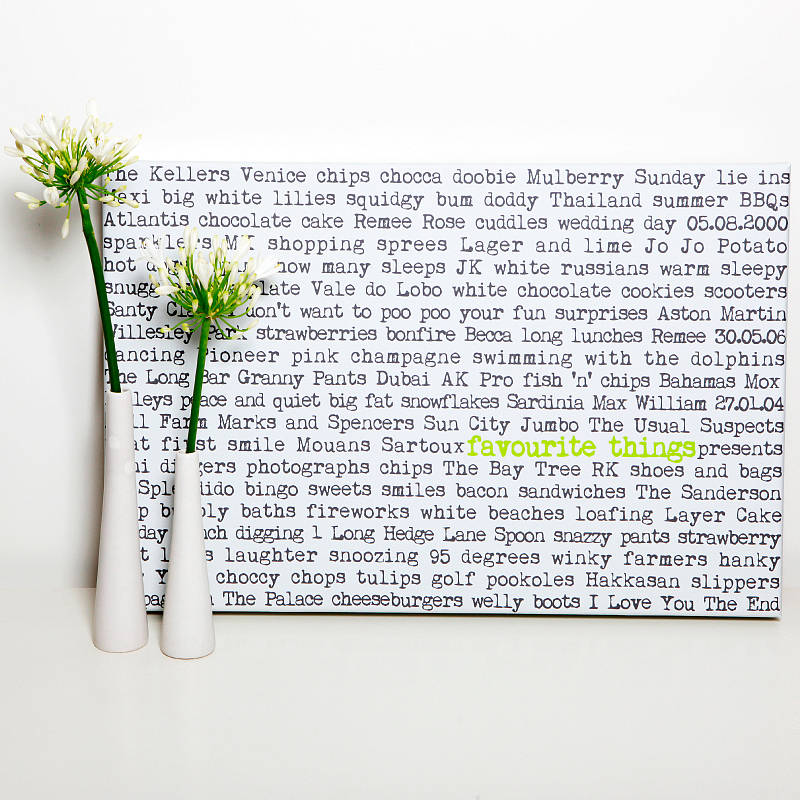 The Kellers Venice chips chocca doobie Mulberry Sunday lie ins
big white lilies squidgy bum doddy Thailand summer BBQs
Atlantis chocolate cake Remee Rose cuddles wedding day 05.08.2000
sparklers MK shopping sprees Lager and lime Jo Jo Potato
hot how many sleeps JK white russians warm sleepy
Vale do Lobo white chocolate cookies scooters
Santy don't want to poo poo your fun surprises Aston Martin
Willesley Park strawberries bonfire Becca long lunches Remee 30.05.06
dancing Pioneer pink champagne swimming with the dolphins
The Long Bar Granny Pants Dubai AK Pro fish 'n' chips Bahamas Mox
peace and quiet big fat snowflakes Sardinia Max William 27.01.04
Farm Marks and Spencers Sun City Jumbo The Usual Suspects
first smile Mouans Sartoux favourite things presents
photographs chips The Bay Tree RK shoes and bags
bingo sweets smiles bacon sandwiches The Sanderson
baths fireworks white beaches loafing Layer Cake
digging 1 Long Hedge Lane Spoon snazzy pants strawberry
laughter snoozing 95 degrees winky farmers hanky
choccy chops tulips golf pookoles Hakkasan slippers
The Palace cheeseburgers welly boots I Love You The End